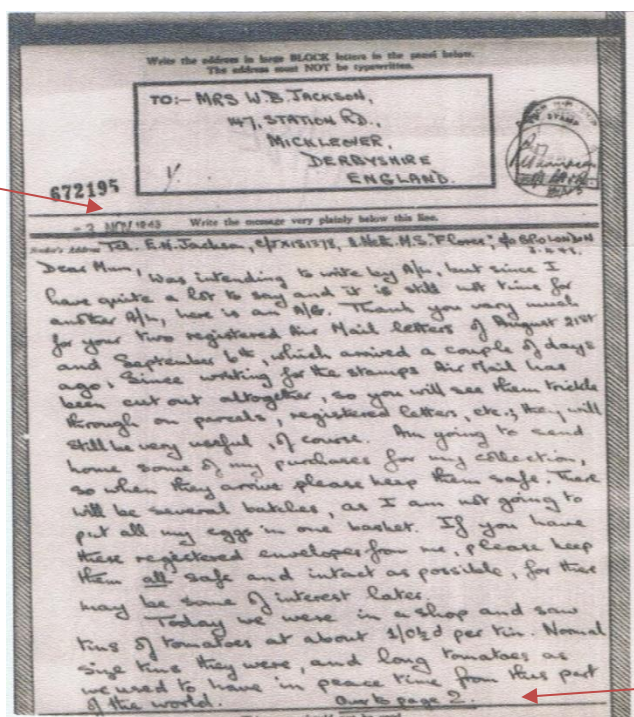 Write the address in large BLOCK letters in the panel below.
The address must NOT be typewritten.
TO:- MRS W.B. JACKSON,
147, STATION RD.,
MICKLEOVER,
DERBYSHIRE
ENGLAND.
672195
-2 NOV 1943
Write the message very plainly below this line.
Sender's Address Tel. E.H. Jackson, "Flores", c/o GPO LONDON
Dear Mum, Was intending to write by A/L, but since I
have quite a lot to say and it is still not time for
another A/L, here is an A/G. Thank you very much
for your two registered Air Mail letters of August 21st
and September 6th, which arrived a couple of days
ago. Since writing for the stamps Air Mail has
been cut out altogether, so you will see them trickle
through on parcels, registered letters, etc.; they will
still be very useful, of course. Am going to send
home some of my purchases for my collection,
so when they arrive please keep them safe. There
will be several batches, as I am not going to
put all my eggs in one basket. If you have
these registered envelopes from me, please keep
them all safe and intact as possible, for there
may be some of interest later.
Today we were in a shop and saw
tins of tomatoes at about 1/0½d per tin. Normal
size tins they were, and long tomatoes as
we used to have in peace time from this part
of the world. Over to page 2.